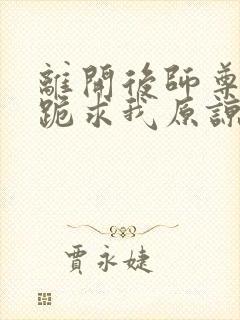 離開後師尊
跪求我原諒
賈永婕